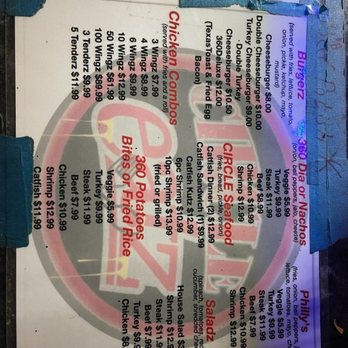 Burgerz
(served with fries, lettuce, tomato,
onion, pickle, ketchup, mayo,
mustard)
Cheeseburger $8.00
Double Cheeseburger $10.00
Turkey Cheeseburger $9.00
Double Turkey
Cheeseburger $10.50
360Deluxe $12.00
(TexasToast & Fried Egg
Bacon)
Chicken Combos
(served with fries and a roll)
3 Wings $7.99
4 Wings $8.99
6 Wings $9.99
10 Wings $12.99
50 Wings $61.99
100 Wings
3 Tenderz $9.99
5 Tenderz $11.99
360 Dia or Nachos
Veggie $5.99
Turkey $9.99
Steak $11.99
Beef $8.99
Chicken $10.99
Shrimp $12.99
CIRCLE Seafood
(fries, bread, pickle, onion)
Catfish Dinner
Catfish Kutz $12.99
6pc Shrimp $10.99
10pc Shrimp $13.99
(fried or grilled)
360 Potatoes
Bites or Fried Rice
Veggie $5.99
Steak $11.99
Turkey $9.99
Beef $7.99
Chicken $10.99
Shrimp $12.99
Catfish $11.99
Philly's
Veggie $5.99
Turkey $9.99
Steak $11.99
Beef $7.99
Chicken $10.99
Shrimp $12.99
Saladz
House Salad
Shrimp
Steak
Beef $7.99
Turkey
Chicken